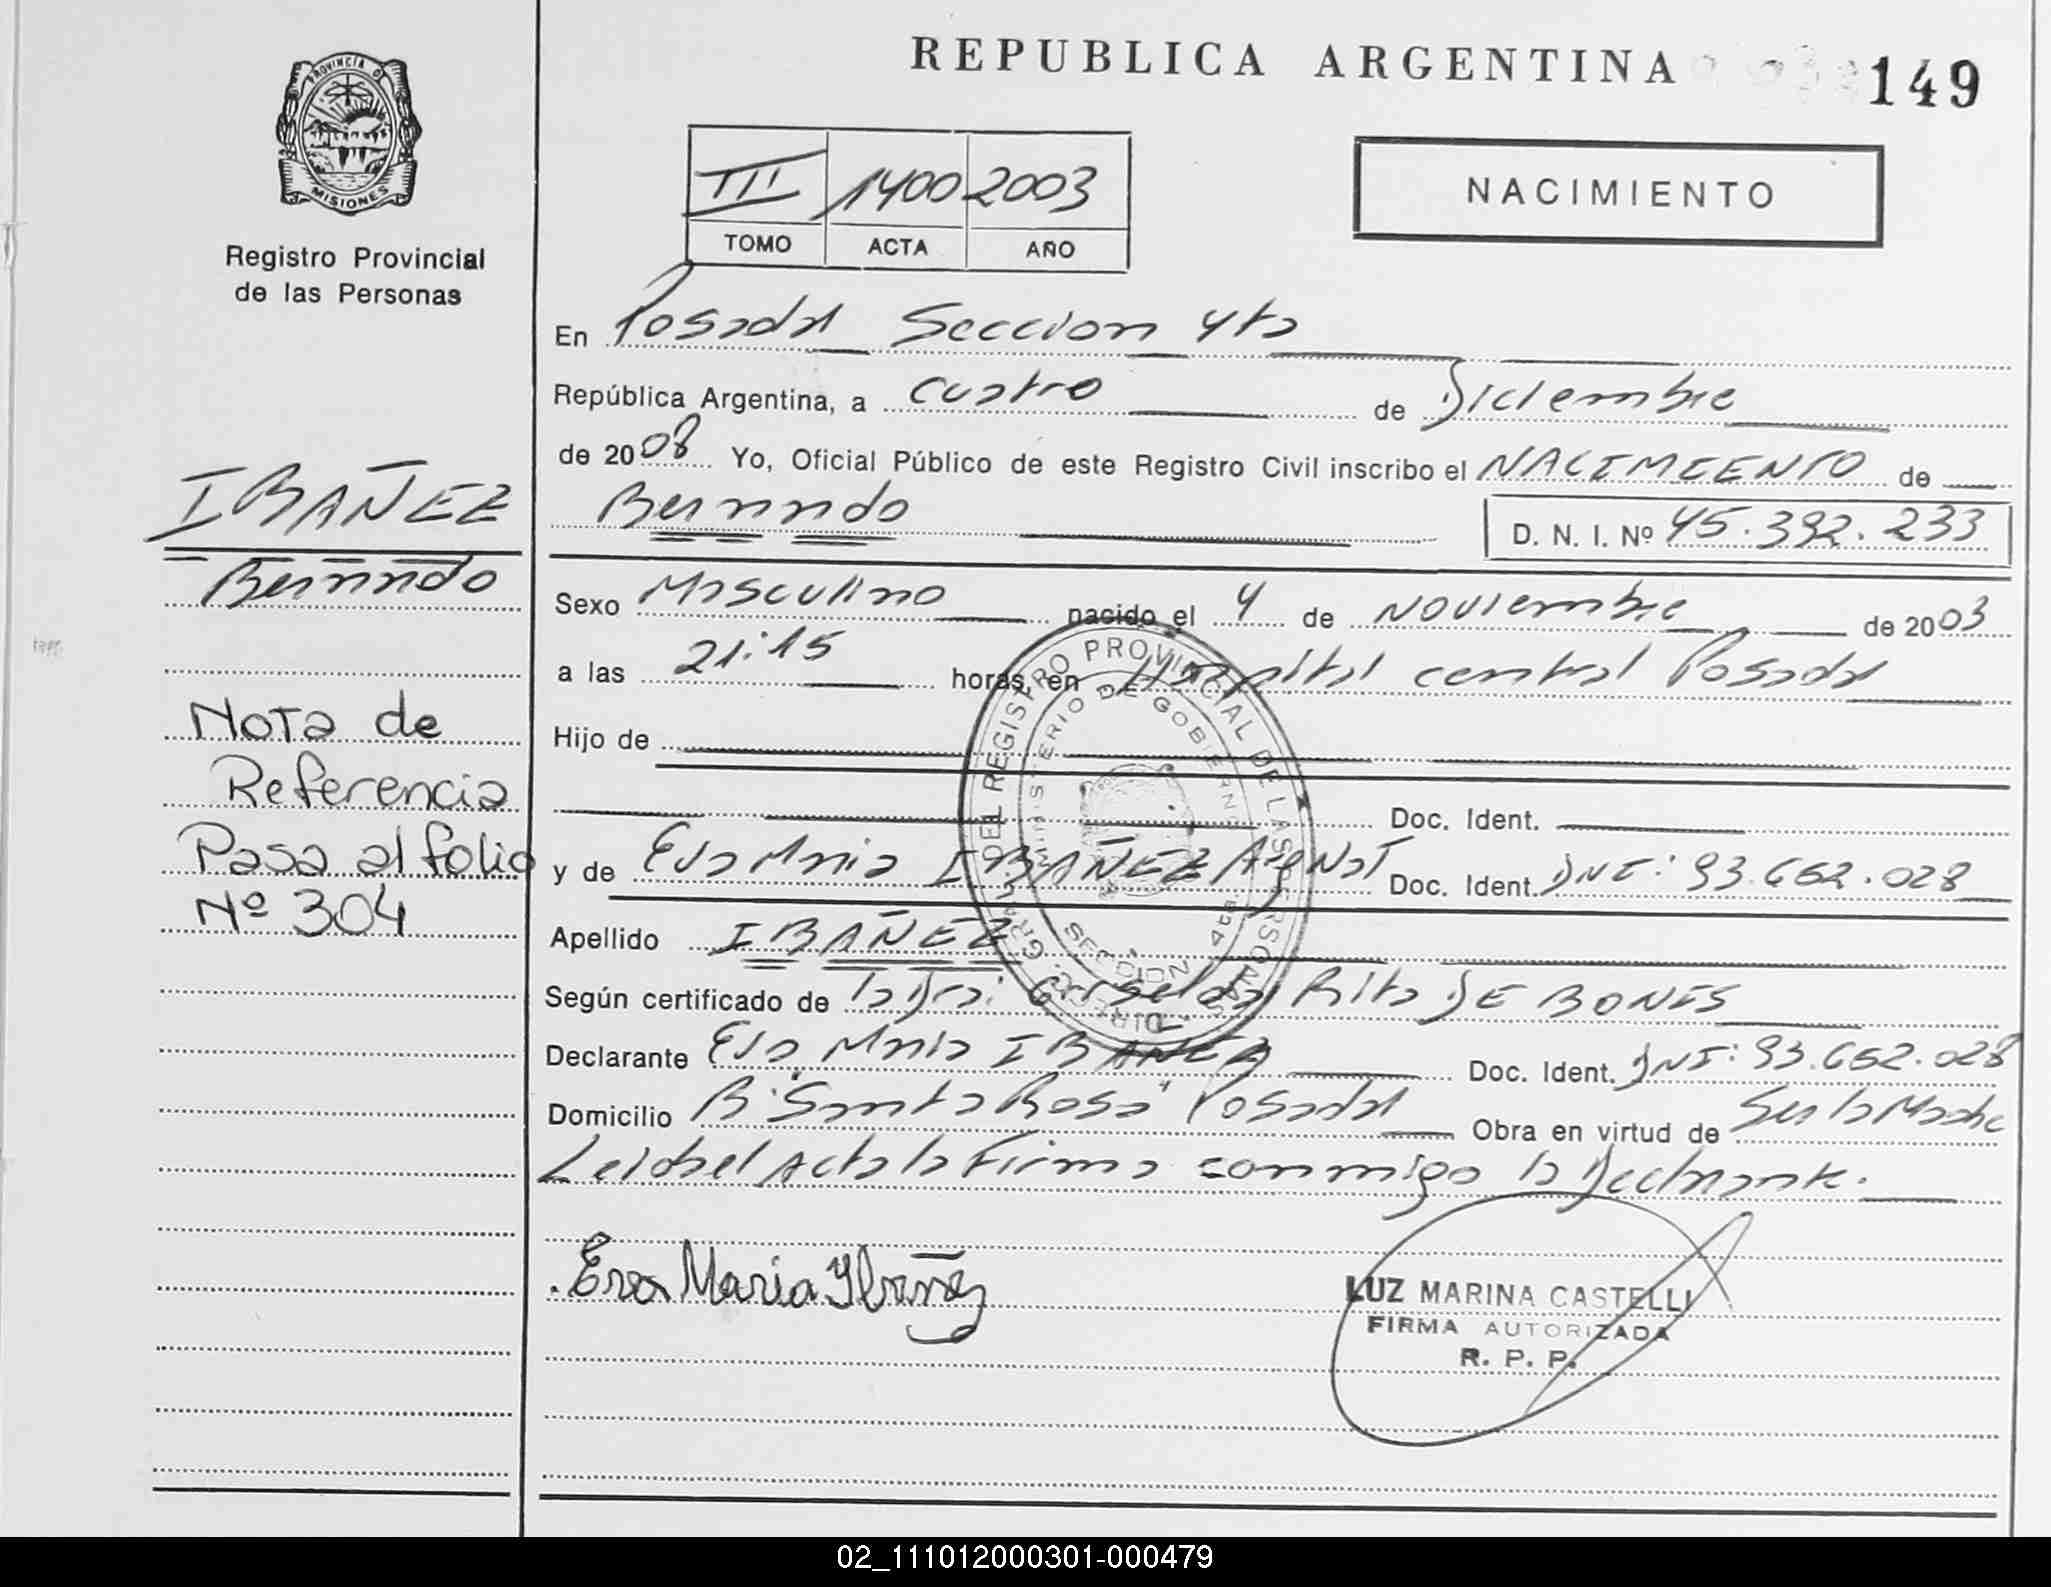 REPUBLICA ARGENTINA
149
PROVINCIA D
MISIONES
Registro Provincial
de las Personas
III 1400 2003
TOMO ACTA AÑO
NACIMIENTO
En Posadas Seccion 4ta
República Argentina, a cuatro de Diciembre
de 2008 Yo, Oficial Público de este Registro Civil inscribo el NACIMIENTO de
Bernardo
D. N. I. Nº 45.392.233
Sexo Masculino nacido el 4 de Noviembre de 2003
a las 21:15 horas, en Hospital central Posadas
Hijo de
Doc. Ident.
y de Eva Maria IBAÑEZ Arg Nat Doc. Ident. DNI: 93.662.028
Apellido IBAÑEZ
Según certificado de la Dra: Griselda Rita DE BONIS
Declarante Eva Maria IBAÑEZ Doc. Ident. DNI: 93.662.028
Domicilio B "Santa Rosa" Posadas Obra en virtud de Ser la Madre
Leida el Acta la Firma conmigo la Declarante.
Eva Maria Ibañez
LUZ MARINA CASTELLI
FIRMA AUTORIZADA
R. P. P.
IBAÑEZ
Bernardo
Nota de
Referencia
Pasa al folio
Nº 304
DIRECC. GRAL. DEL REGISTRO PROVINCIAL DE LAS PERSONAS
MINISTERIO DE GOBIERNO
SECCION 4ta.
02_111012000301-000479